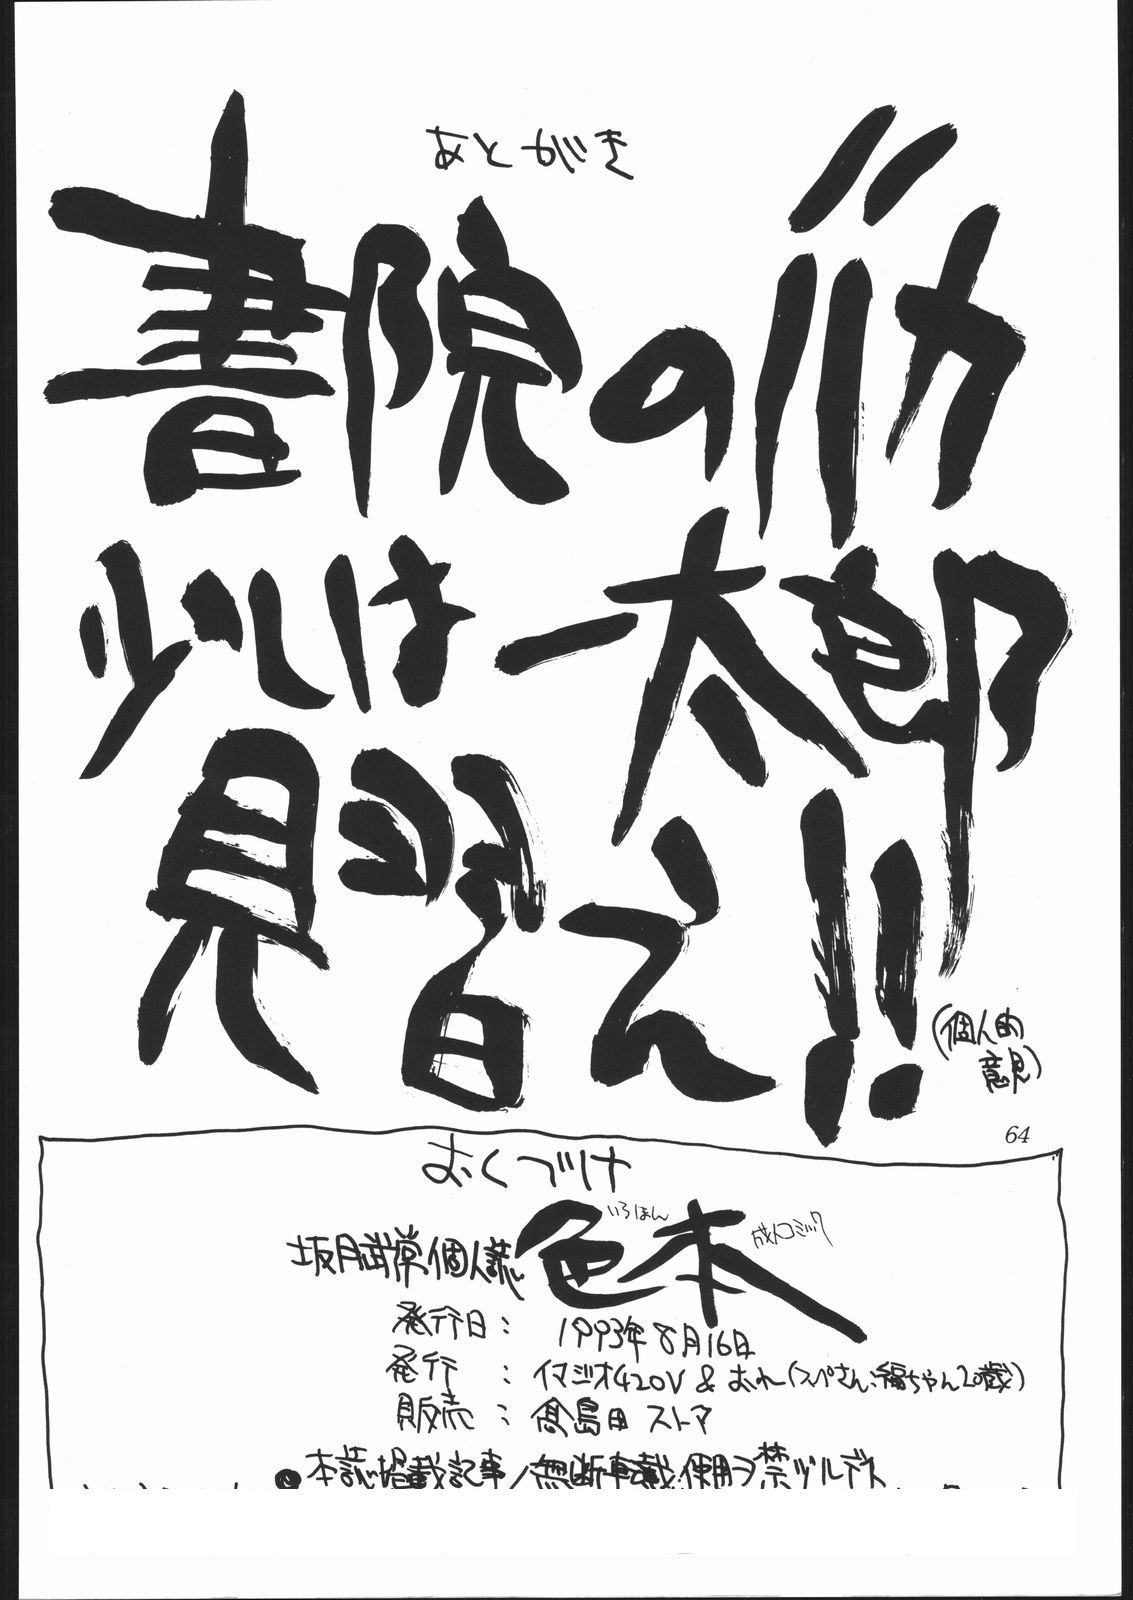 あとがき
書院のバカ
少しは一太郎
見習え!!
(個人的
意見)
64
おくづけ
坂月武常個人誌 色本 いろほん 成人コミック
発行日: 1993年8月16日
発行 : イマジオ420V & おれ(スペさん、福ちゃん20歳)
販売 : 髙島田 ストア
●本誌掲載記事ノ無断転載、使用ヲ禁ヅルデス